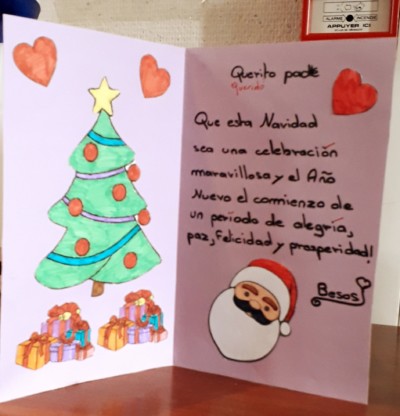 ALARME INCENDIE
APPUYER ICI
Querito padre
Querido
Que esta Navidad
sea una celebración
maravillosa y el Año
Nuevo el comienzo de
un período de alegría,
paz, felicidad y prosperidad!
Besos